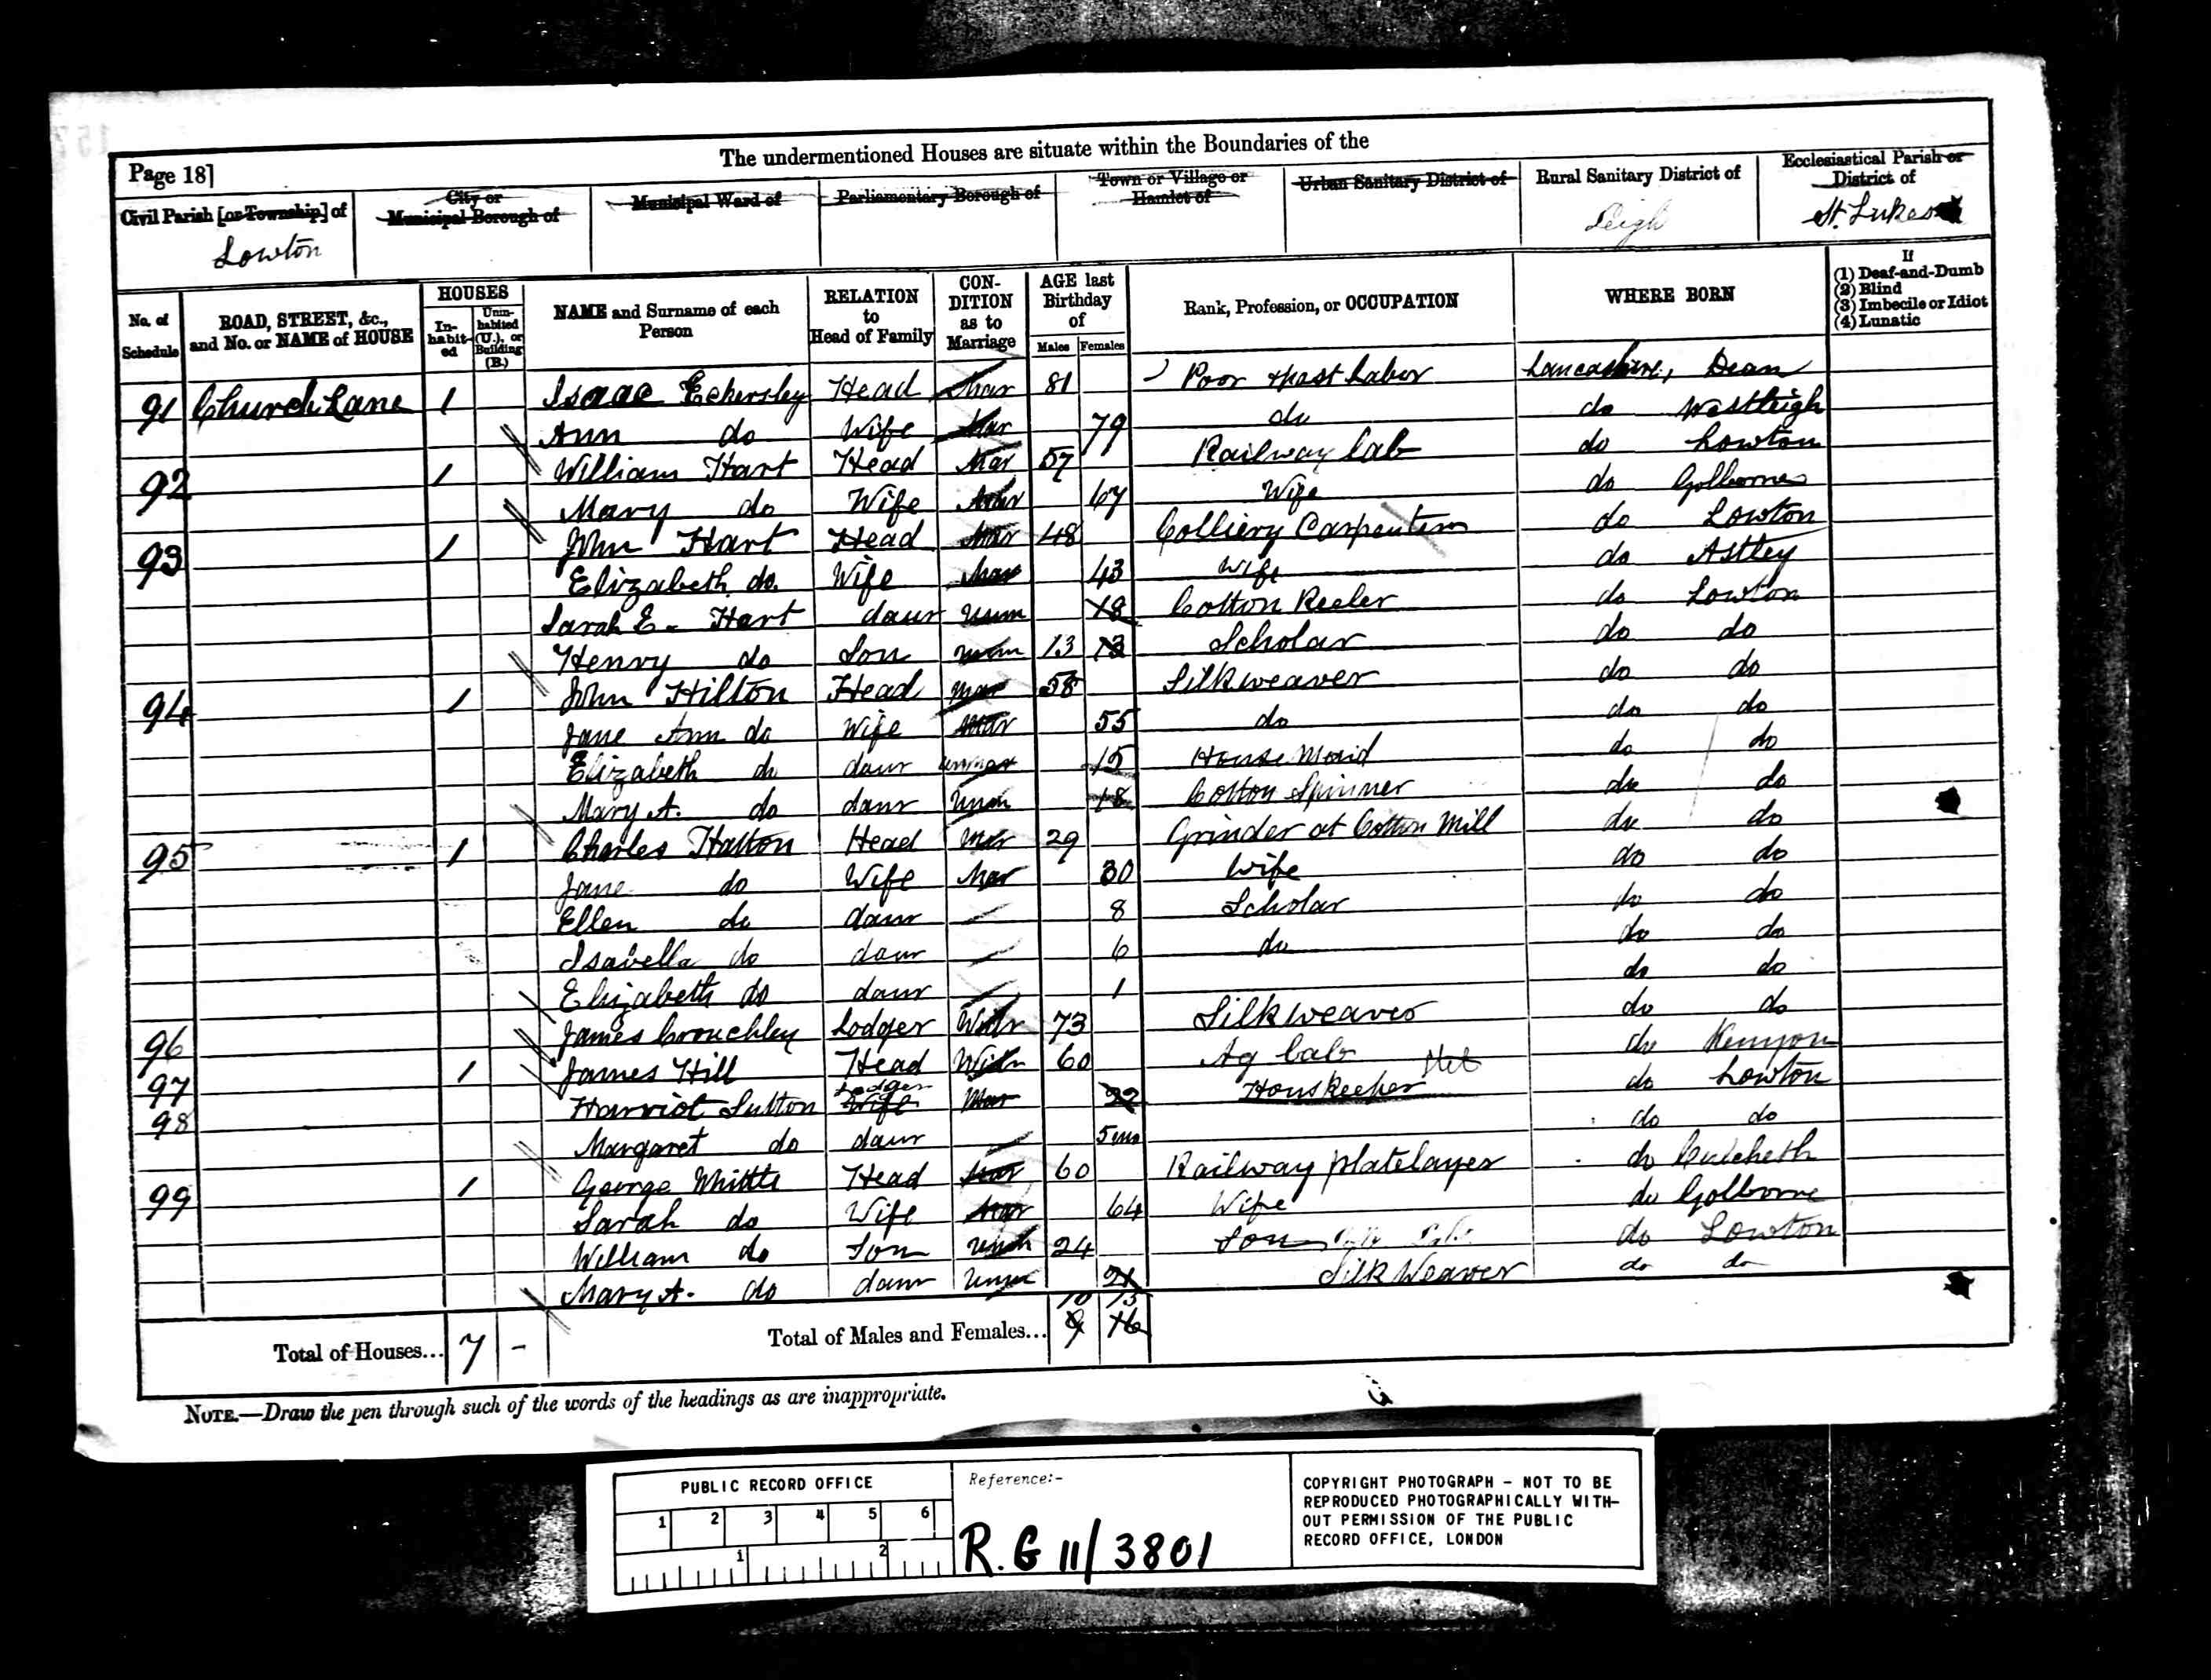 The undermentioned Houses are situate within the Boundaries of the
Page 18]
Civil Parish [or Township] of Lowton
City or Municipal Borough of
Municipal Ward of
Parliamentary Borough of
Town or Village or Hamlet of
Urban Sanitary District of
Rural Sanitary District of Leigh
Ecclesiastical Parish or District of St. Lukes
No. of Schedule
ROAD, STREET, &c., and No. or NAME of HOUSE
HOUSES
In-habit-ed
Unin-habited (U.), or Building (B.)
NAME and Surname of each Person
RELATION to Head of Family
CON-DITION as to Marriage
AGE last Birthday of
Males Females
Rank, Profession, or OCCUPATION
WHERE BORN
If
(1) Deaf-and-Dumb
(2) Blind
(3) Imbecile or Idiot
(4) Lunatic
91 Church Lane 1 Isaac Eckersley Head Mar 81 Poor past Labor Lancashire, Dean
Ann do Wife Mar 79 do do Westleigh
92 1 William Hart Head Mar 57 Railway Lab do Lowton
Mary do Wife Mar 67 Wife do Golborne
93 1 John Hart Head Mar 48 Colliery Carpenter do Lowton
Elizabeth do Wife Mar 43 Wife do Astley
Sarah E. Hart daur Unm 18 Cotton Reeler do Lowton
Henry do Son Unm 13 13 Scholar do do
94 1 John Hilton Head Mar 58 Silk weaver do do
Jane Ann do Wife Mar 55 do do do
Elizabeth do daur unmar 15 House Maid do do
Mary A. do daur Unm 18 Cotton Spinner do do
95 1 Charles Hatton Head Mar 29 Grinder at Cotton Mill do do
Jane do Wife Mar 30 Wife do do
Ellen do daur 8 Scholar do do
Isabella do daur 6 do do do
Elizabeth do daur 1 do do
96 James Crouchley Lodger Widr 73 Silk weaver do do
97 1 James Hill Head Widr 60 Ag Lab do Kenyon
98 Harriot Sutton Lodger Wife Mar 22 Houskeeper do Lowton
Margaret do daur 5 mo do do
99 1 George Whittle Head Mar 60 Railway platelayer do Culcheth
Sarah do Wife Mar 64 Wife do Golborne
William do Son Unm 24 Son do Lowton
Mary A. do daur Unm 21 Silk Weaver do do
10 15
Total of Houses... 7 - Total of Males and Females... 9 16
NOTE.—Draw the pen through such of the words of the headings as are inappropriate.
PUBLIC RECORD OFFICE
1 2 3 4 5 6
1 2
Reference:-
R.G 11/3801
COPYRIGHT PHOTOGRAPH - NOT TO BE
REPRODUCED PHOTOGRAPHICALLY WITH-
OUT PERMISSION OF THE PUBLIC
RECORD OFFICE, LONDON